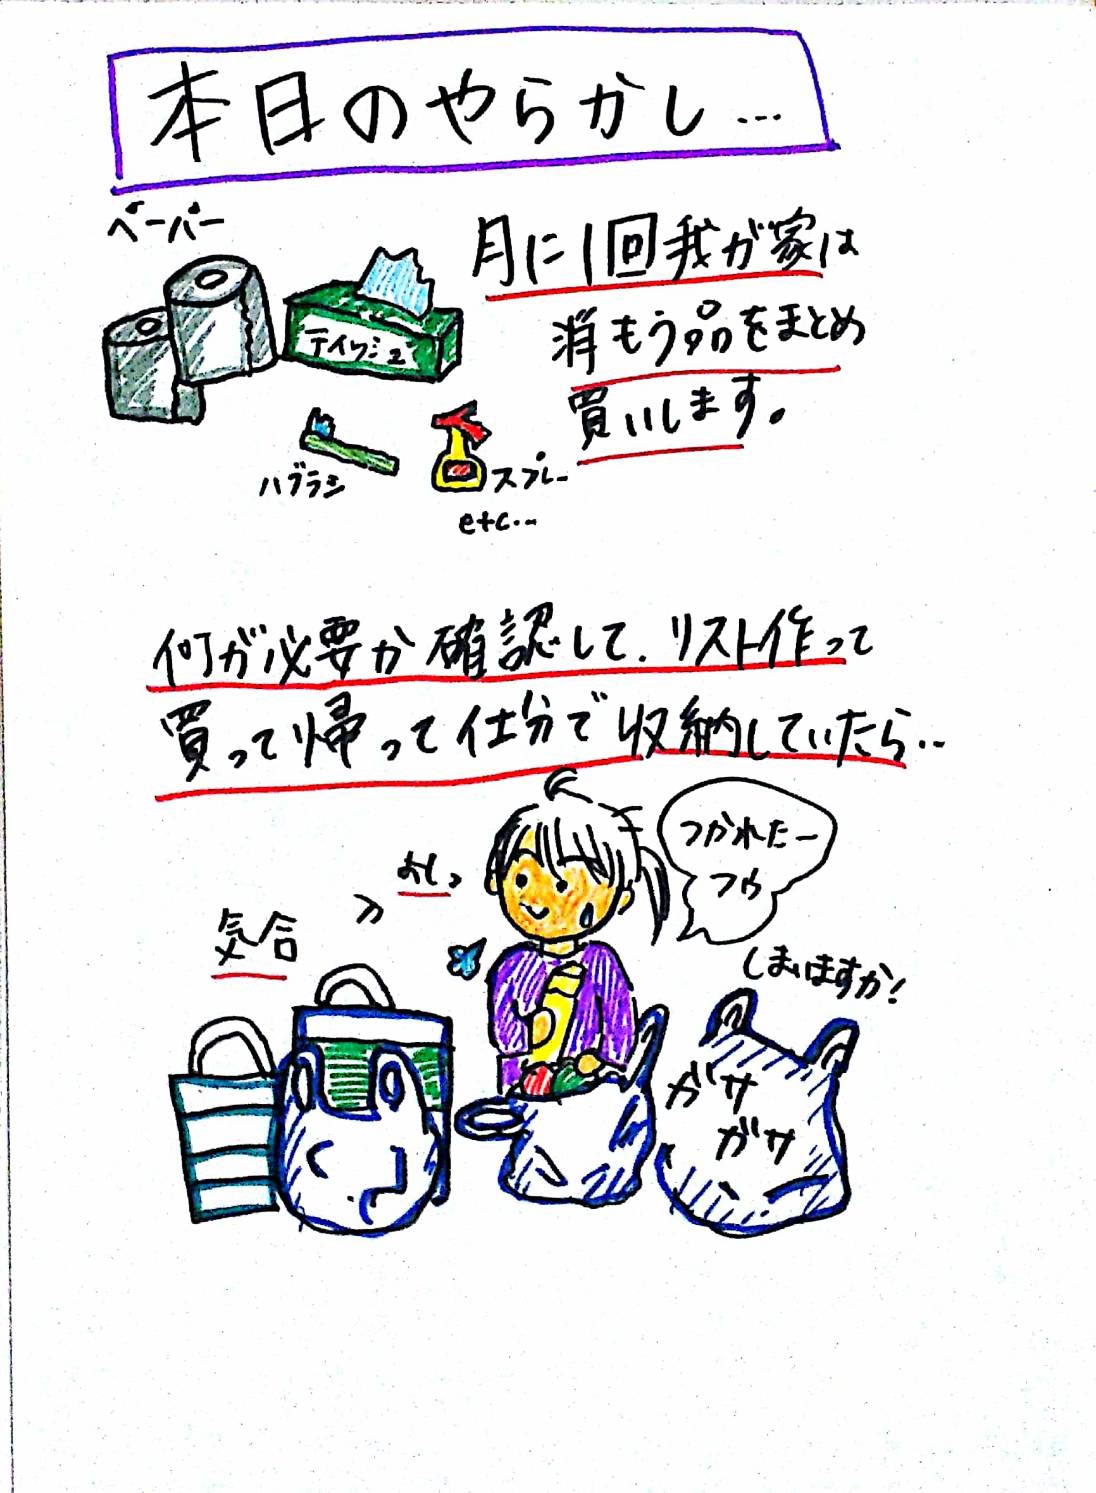 本日のやらかし…
ペーパー
ティッシュ
ハブラシ
スプレー
etc…
月に1回我が家は
消もう品をまとめ
買いします。
何が必要か確認して、リスト作って
買って帰って仕分で収納していたら…
よしっ
つかれたー
フゥ
気合
しまいますか!
ガサ
ガサ